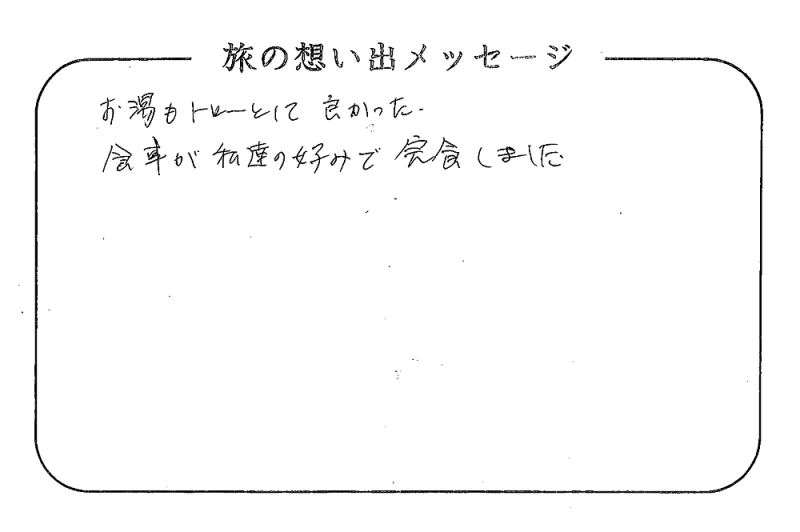 旅の想い出メッセージ
お湯もトローとして良かった.
食事が私達の好みで完食しました